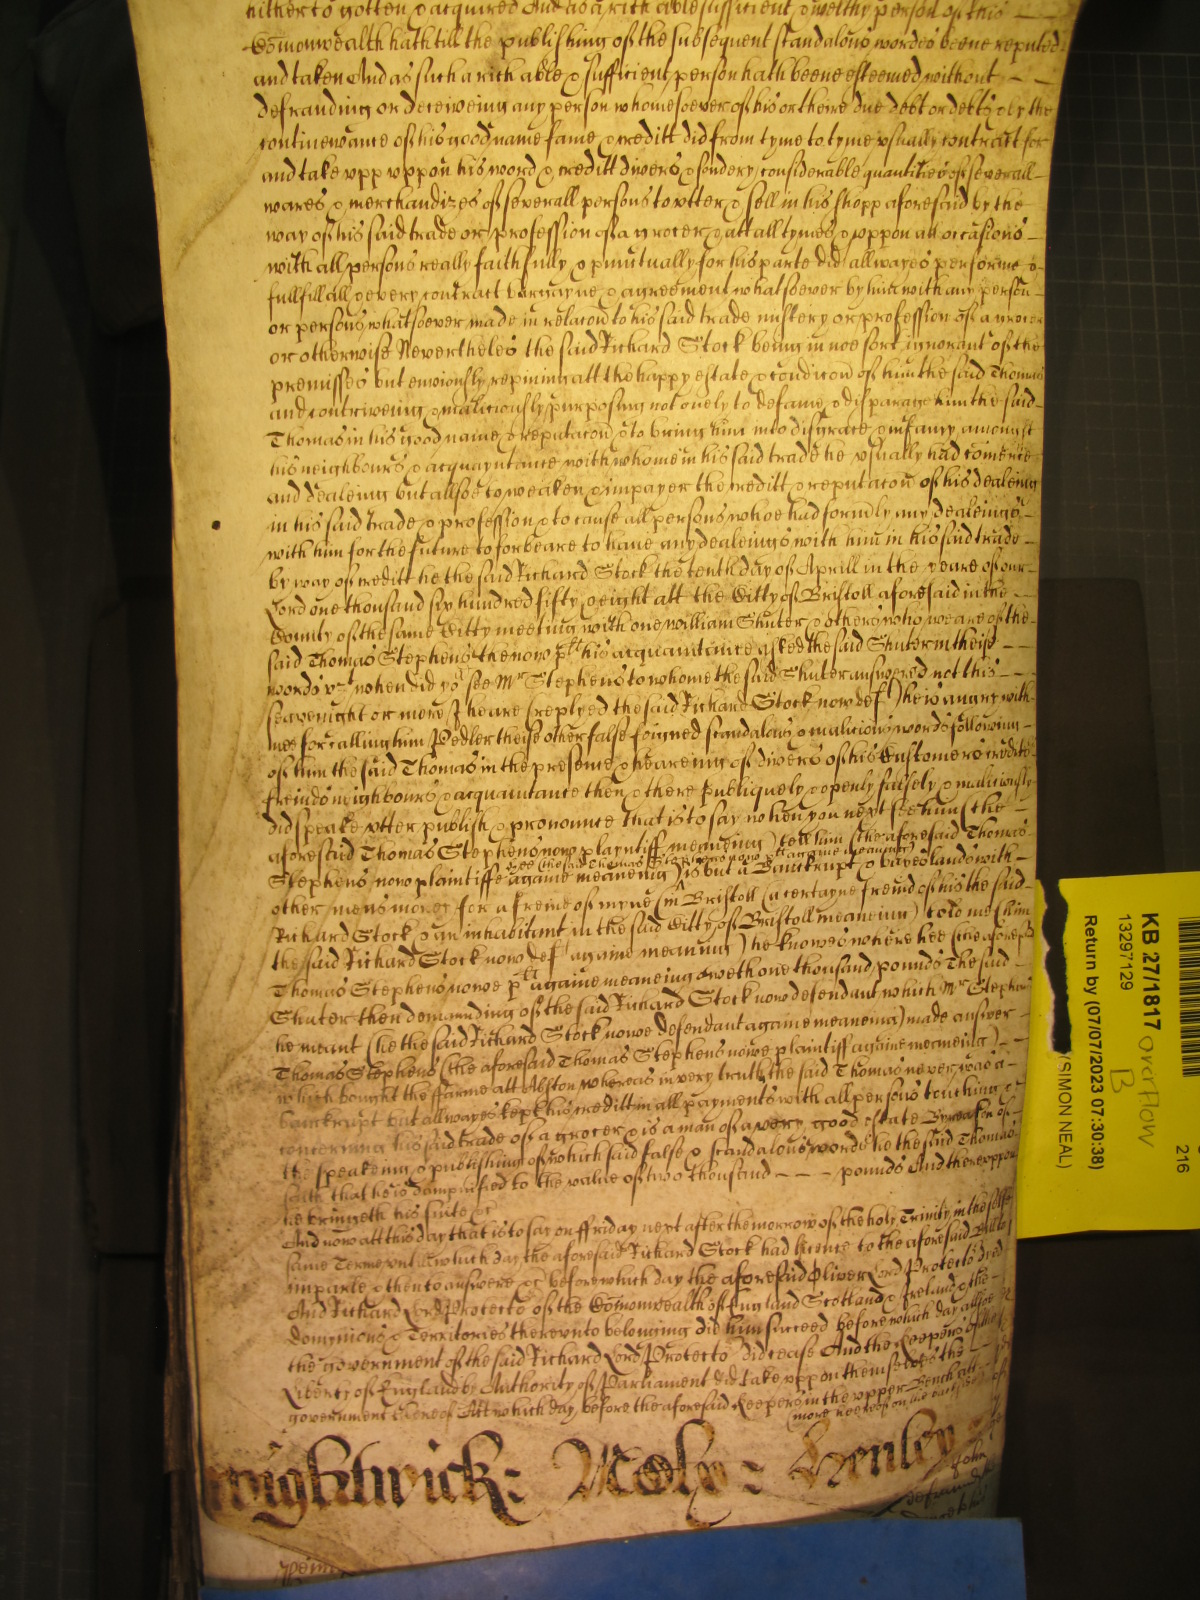 hitherto gotten & acquired And as a rich able sufficient & welthy person of this
Com̄onwealth hath till the publishing of the subsequent scandalous wordes beene reputed
and taken And as such a rich able & sufficient person hath beene esteemed without
defrauding or deceiveing any person whomesoever of his or theire due debt or debts by the
contineuance of his good name fame & creditt did from tyme to tyme usually contract for
and take upp uppon his word & creditt divers & sondery considerable quantities of severall
wares & merchandizes of severall persons to utter & sell in his shopp aforesaid by the
way of his said trade or profession of a grocer & att all tymes & uppon all occasions
with all persons really faithfully & punctually for his parte did allwayes performe &
fullfill all & every contract bargayne & agreement whatsoever by him with any person
or persons whatsoever made in relacōn to his said trade mistery or profession of a grocer
or otherwise Neverthelės the said Richard Stock being in noe sort ignorant of the
premisses but enviously repining att the happy estate & condicōn of him the said Thomas
and contriveing & maliciously purposing not onely to defame & disparage him the said
Thomas in his good name & reputacōn & to bring him into disgrace & infamy amongst
his neighbours & acquayntance with whome in his said trade he usually had comerce
and dealeing but allsoe to weaken & impayer the creditt & reputacōn of his dealeing
in his said trade & profession & to cause all persons whoe had formerly any dealeings
with him for the future to forbeare to have any dealeings with him in his said trade
by way of creditt he the said Richard Stock the tenth day of Aprill in the yeare of our
Lord one thousand six hundred fifty & eight att the Citty of Bristoll aforesaid in the
County of the same Citty meeting with one William Shuter & others who weare of the
said Thomas Stephens the now plt his acquaintance asked the said Shuter in theise
words vzt when did yo see Mr Stephens to whome the said Shuter answered not this
seavenight or more I heare (replyed the said Richard Stock now def) he is angry with
mee for calling him Pedler theise other false feigned scandalous & malicious words following
of him the said Thomas in the presence & heareing of divers of his Customers creditors
freinds neighbours & acquaintance then & there publiquely & openly falsely & maliciously
did speake utter publish & pronounce that is to say when you next see him (the
aforesaid Thomas Stephens now playntiff meaneing) tell him (the aforesaid Thomas
Stephens now plaintiffe againe meaneing) hee (the said Thomas Stephens now plt againe meaneing) is but a Banckrupt & buyes lands with
other mens money for a freind of myne in Bristoll (a certayne freind of his the said
Richard Stock & an inhabitant in the said Citty of Bristoll meaneing) told me (him
the said Richard Stock now def againe meaneing) he knowes where hee (the aforesd
Thomas Stephens nowe plt againe meaneing oweth one thousand pounds The said
Shuter then demanding of the said Richard Stock now defendant which Mr Stephens
he meant (he the said Richard Stock nowe defendant againe meaneing) made answer
Thomas Stephens (the aforesaid Thomas Stephens nowe plaintiff againe meaneing)
which bought the ffarme att Alston whereas in very truth the said Thomas never was a
banckrupt but allwayes kept his creditt in all payments with all persons touching &
concerning his said trade of a grocer & is a man of a very good estate By reason of
the speakeing & publishing of which said false & scandalous words he the said Thomas
saith that he is dampnified to the value of two thousand - - - pounds And thereuppon
he bringeth his suite &c
And now att this day that is to say on ffriday next after the morrow of the holy Trinity in the selfe
same Terme untill which day the aforesaid Richard Stock had licence to the aforesaid Bill to
imparle & then to answere &c before which day the aforesaid Oliver Lord Protector dyed
And Richard Lord Protector of the Com̄onwealth of England Scotland & Ireland & the
dominions & Territories thereunto belonging did him succeed before which day allsoe
the government of the said Richard Lord Protector did cease And the Keepers of the
Liberty of England by Authority of Parliament did take uppon themselves the
government thereof Att which day before the aforesaid Keepers in the upper Bench att
(more hereof on the backside)
Wightwick: Moly: Henley
John
defraud
KB 27/1817 overflow
B
13297129
Return by (07/07/2023 07:30:38)
(SIMON NEAL)
216